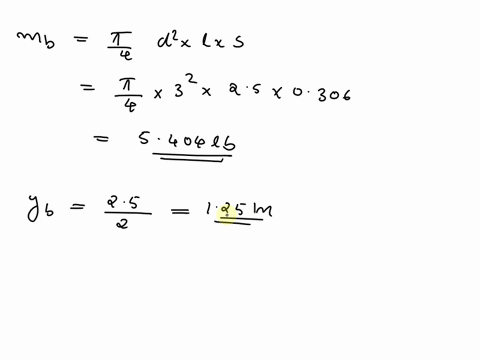 m_b = π/4 d² x l x s
= π/4 x 3² x 2.5 x 0.306
= 5.404 lb
y_b = 2.5/2 = 1.25 m